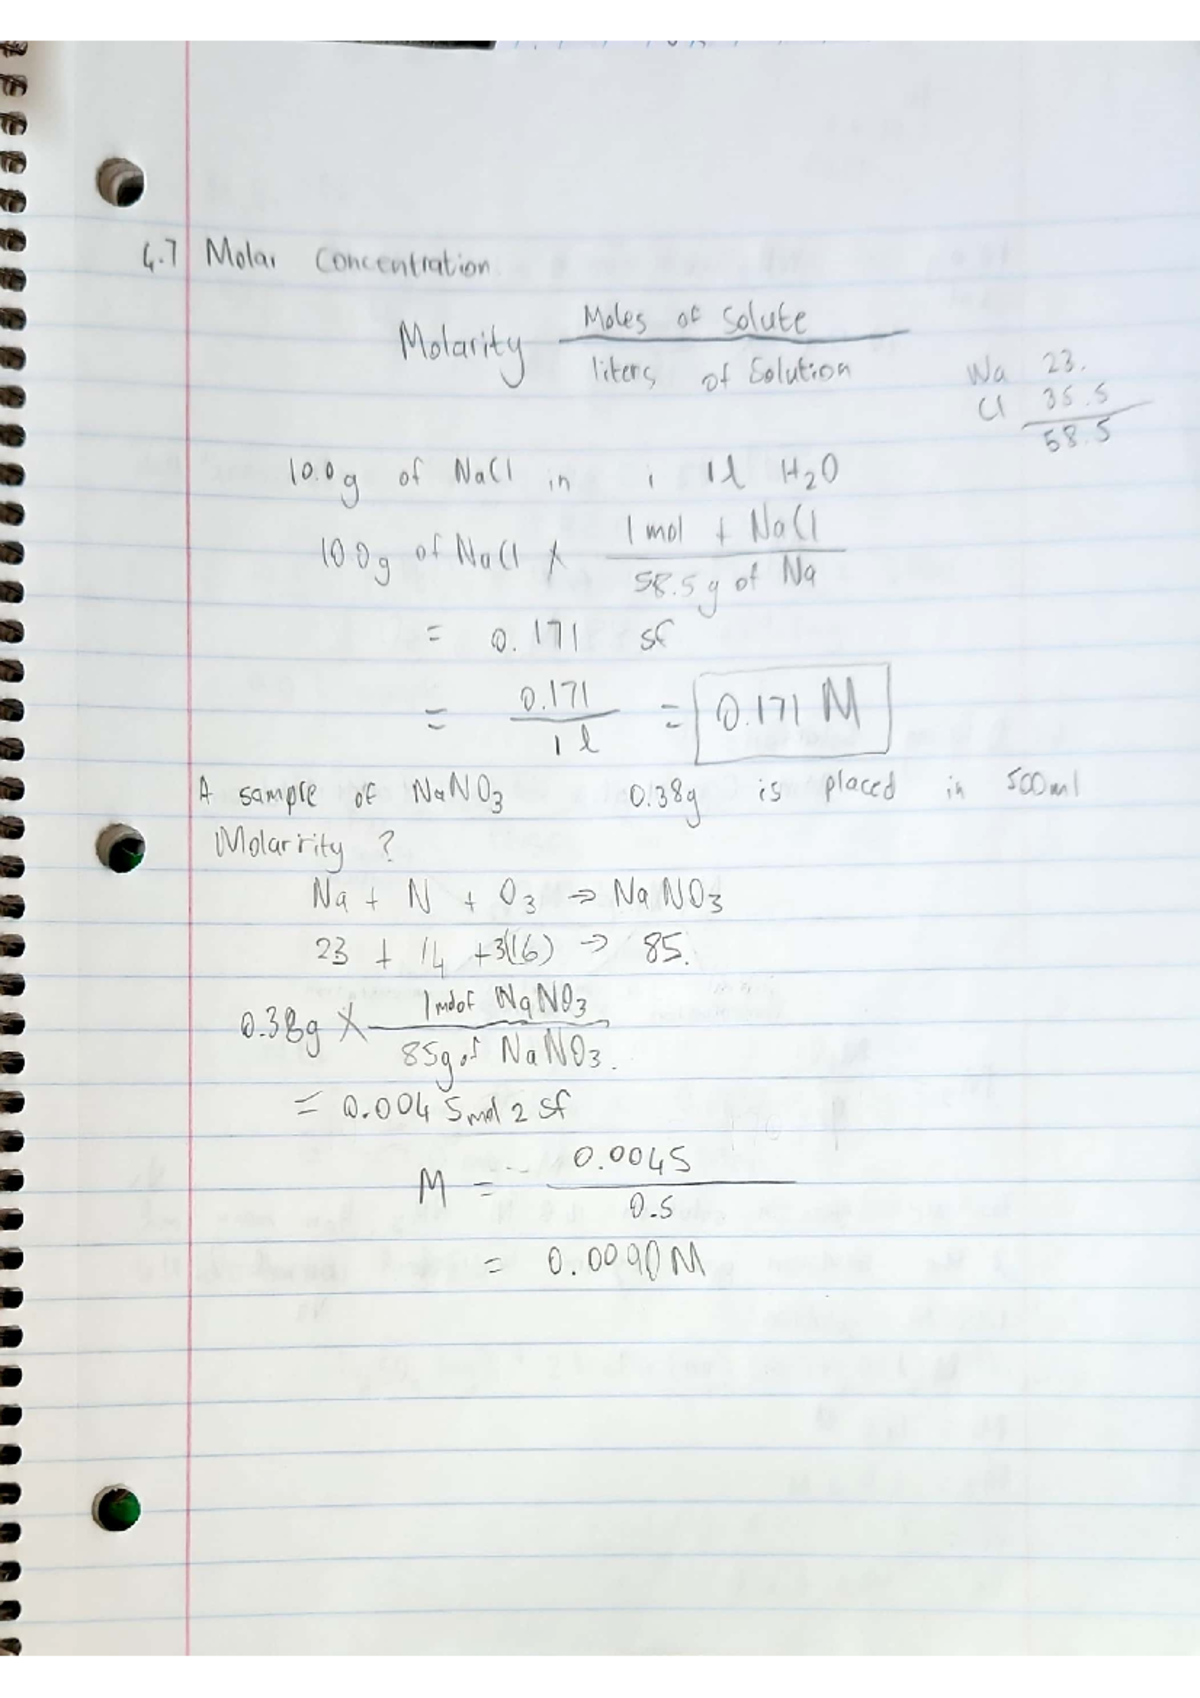 4.7 Molar Concentration
Molarity Moles of Solute
liters of Solution
Na 23.
Cl 35.5
58.5
10.0g of NaCl in 1 1l H2O
10.0g of NaCl X 1 mol + NaCl
58.5g of Na
= 0.171 sf
= 0.171
1 l
= 0.171 M
A sample of NaNO3 0.38g is placed in 500ml
Molarrity ?
Na + N + O3 => NaNO3
23 + 14 +3(16) -> 85.
0.38g X 1 mol of NaNO3
85g of NaNO3.
= 0.0045 mol 2 sf
M = 0.0045
0.5
= 0.0090 M